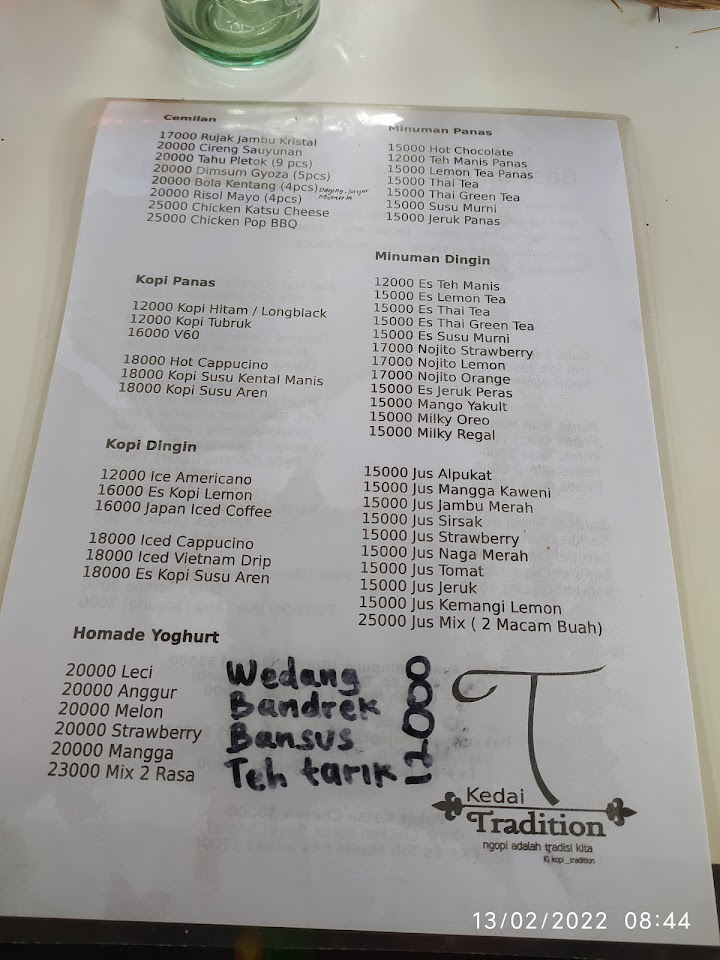 Cemilan
17000 Rujak Jambu Kristal
20000 Cireng Sauyunan
20000 Tahu Pletok (9 pcs)
20000 Dimsum Gyoza (5pcs)
20000 Bola Kentang (4pcs)
20000 Risol Mayo (4pcs)
25000 Chicken Katsu Cheese
25000 Chicken Pop BBQ
Minuman Panas
15000 Hot Chocolate
12000 Teh Manis Panas
15000 Lemon Tea Panas
15000 Thai Tea
15000 Thai Green Tea
15000 Susu Murni
15000 Jeruk Panas
Kopi Panas
12000 Kopi Hitam / Longblack
12000 Kopi Tubruk
16000 V60
18000 Hot Cappucino
18000 Kopi Susu Kental Manis
18000 Kopi Susu Aren
Minuman Dingin
12000 Es Teh Manis
15000 Es Lemon Tea
15000 Es Thai Tea
15000 Es Thai Green Tea
15000 Es Susu Murni
17000 Nojito Strawberry
17000 Nojito Lemon
17000 Nojito Orange
15000 Es Jeruk Peras
15000 Mango Yakult
15000 Milky Oreo
15000 Milky Regal
Kopi Dingin
12000 Ice Americano
16000 Es Kopi Lemon
16000 Japan Iced Coffee
18000 Iced Cappucino
18000 Iced Vietnam Drip
18000 Es Kopi Susu Aren
15000 Jus Alpukat
15000 Jus Mangga Kaweni
15000 Jus Jambu Merah
15000 Jus Sirsak
15000 Jus Strawberry
15000 Jus Naga Merah
15000 Jus Tomat
15000 Jus Jeruk
15000 Jus Kemangi Lemon
25000 Jus Mix ( 2 Macam Buah)
Homade Yoghurt
20000 Leci
20000 Anggur
20000 Melon
20000 Strawberry
20000 Mangga
23000 Mix 2 Rasa
Wedang
Bandrek
Bansus
Teh tarik
12000
T
Kedai
Tradition
ngopi adalah tradisi kita
IG kopi_tradition
13/02/2022 08:44